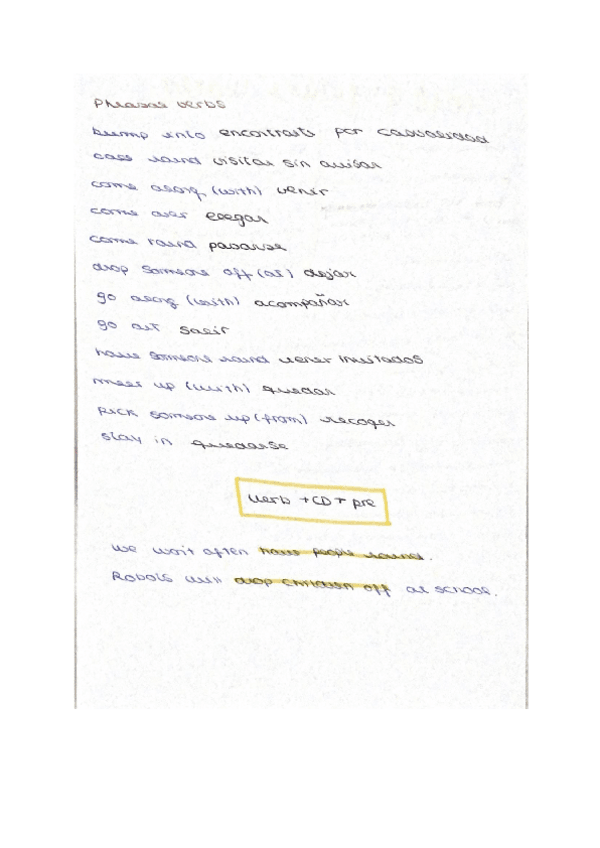 Phrasal verbs
bump into encontrarte por casualidad
call round visitar sin avisar
come along (with) venir
come over llegar
come round pasarse
drop someone off (at) dejar
go along (with) acompañar
go out salir
have someone round tener invitados
meet up (with) quedar
pick someone up (from) recoger
stay in quedarse
verb + CD + pre
we won't often have people round.
Robots will drop children off at school.